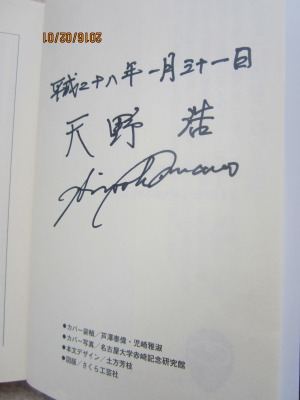 2016/02/01
平成二十八年一月三十一日
天野 浩
Hiroshi Amano
●カバー装幀/芦澤泰偉・児崎雅淑
●カバー写真/名古屋大学赤﨑記念研究館
●本文デザイン/土方芳枝
●図版/さくら工芸社